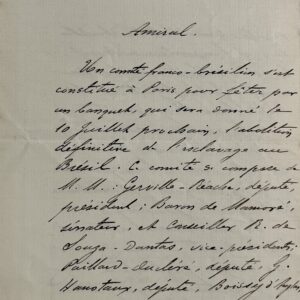 Amiral.
Un comité franco-brésilien s'est
constitué à Paris pour fêter par
un banquet, qui sera donné le
10 Juillet prochain, l'abolition
définitive de l'esclavage au
Brésil. Ce comité se compose de
M. M. : Gerville-Réache, député,
président ; Baron de Mamoré,
sénateur, et Conseiller R. de
Souza-Dantas, vice-présidents ;
Paillard-Ducléré, député ; G.
Hanotaux, député, Boissy d'Anglas